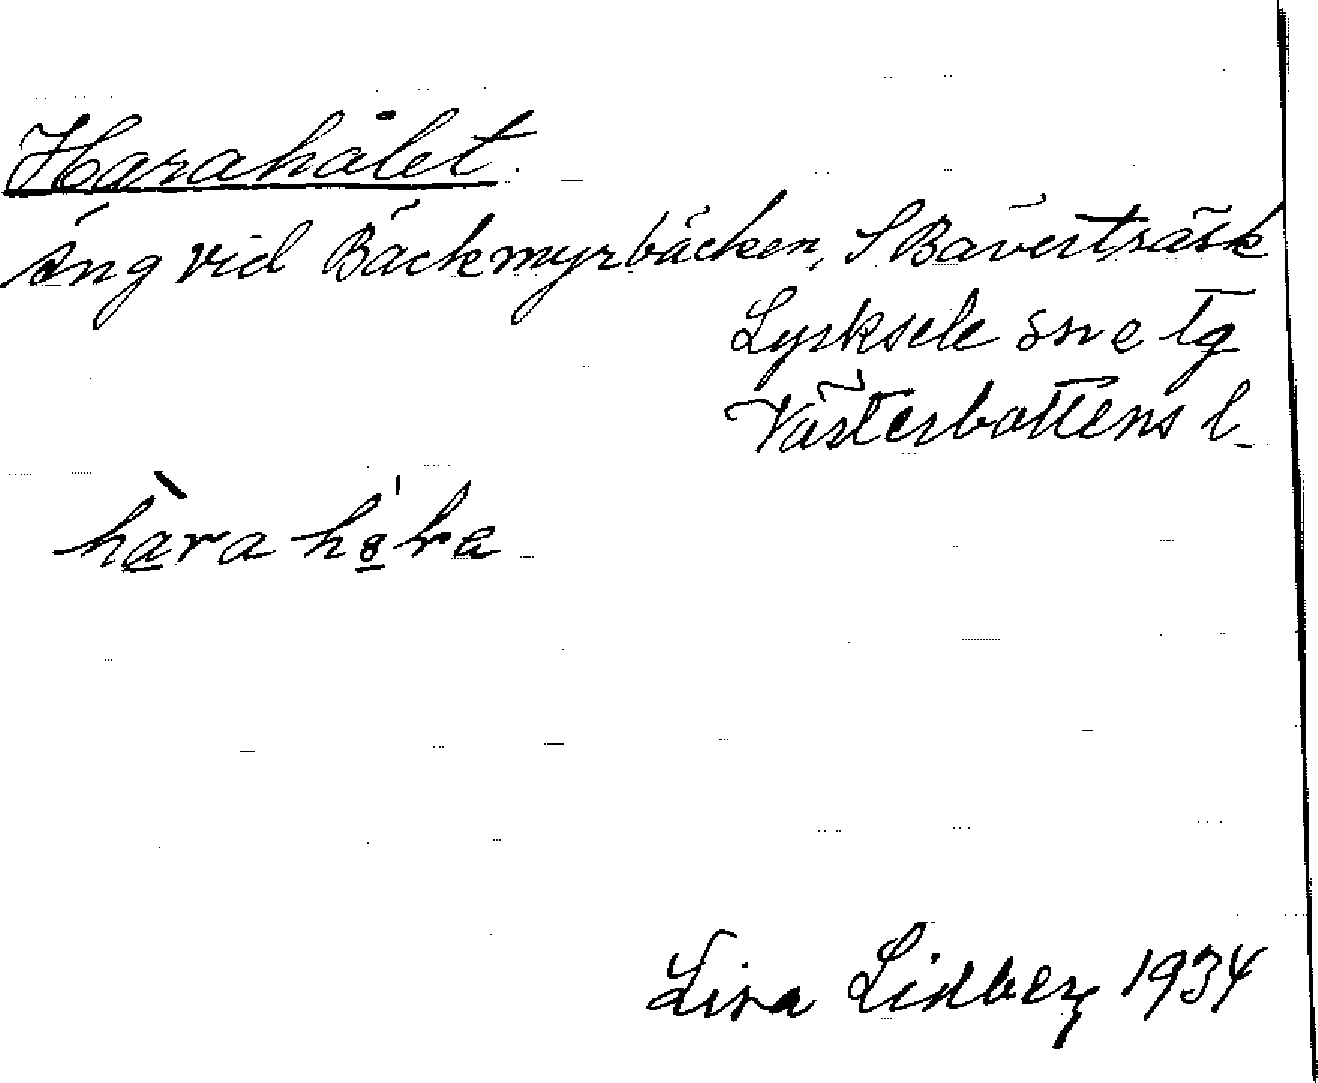 Harahålet.
äng vid Bäckmyrbäcken, S Bäverträsk
Lycksele sn o tg
Västerbottens l.
Lisa Lidberg 1934